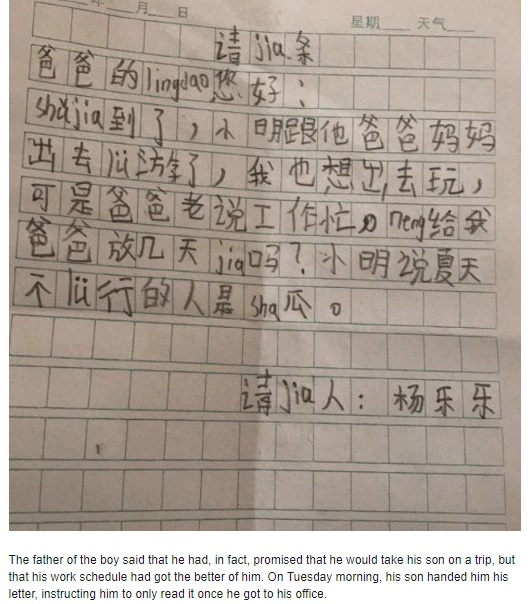 年 月 日 星期 天气
请jia条
爸爸的lingdao您好：
shǔjia到了，小明跟他爸爸妈妈
出去lü游了，我也想出去玩，
可是爸爸老说工作忙。neng给我
爸爸放几天jia吗？小明说夏天
不lü行的人是sha瓜。
请jia人：杨乐乐
The father of the boy said that he had, in fact, promised that he would take his son on a trip, but
that his work schedule had got the better of him. On Tuesday morning, his son handed him his
letter, instructing him to only read it once he got to his office.